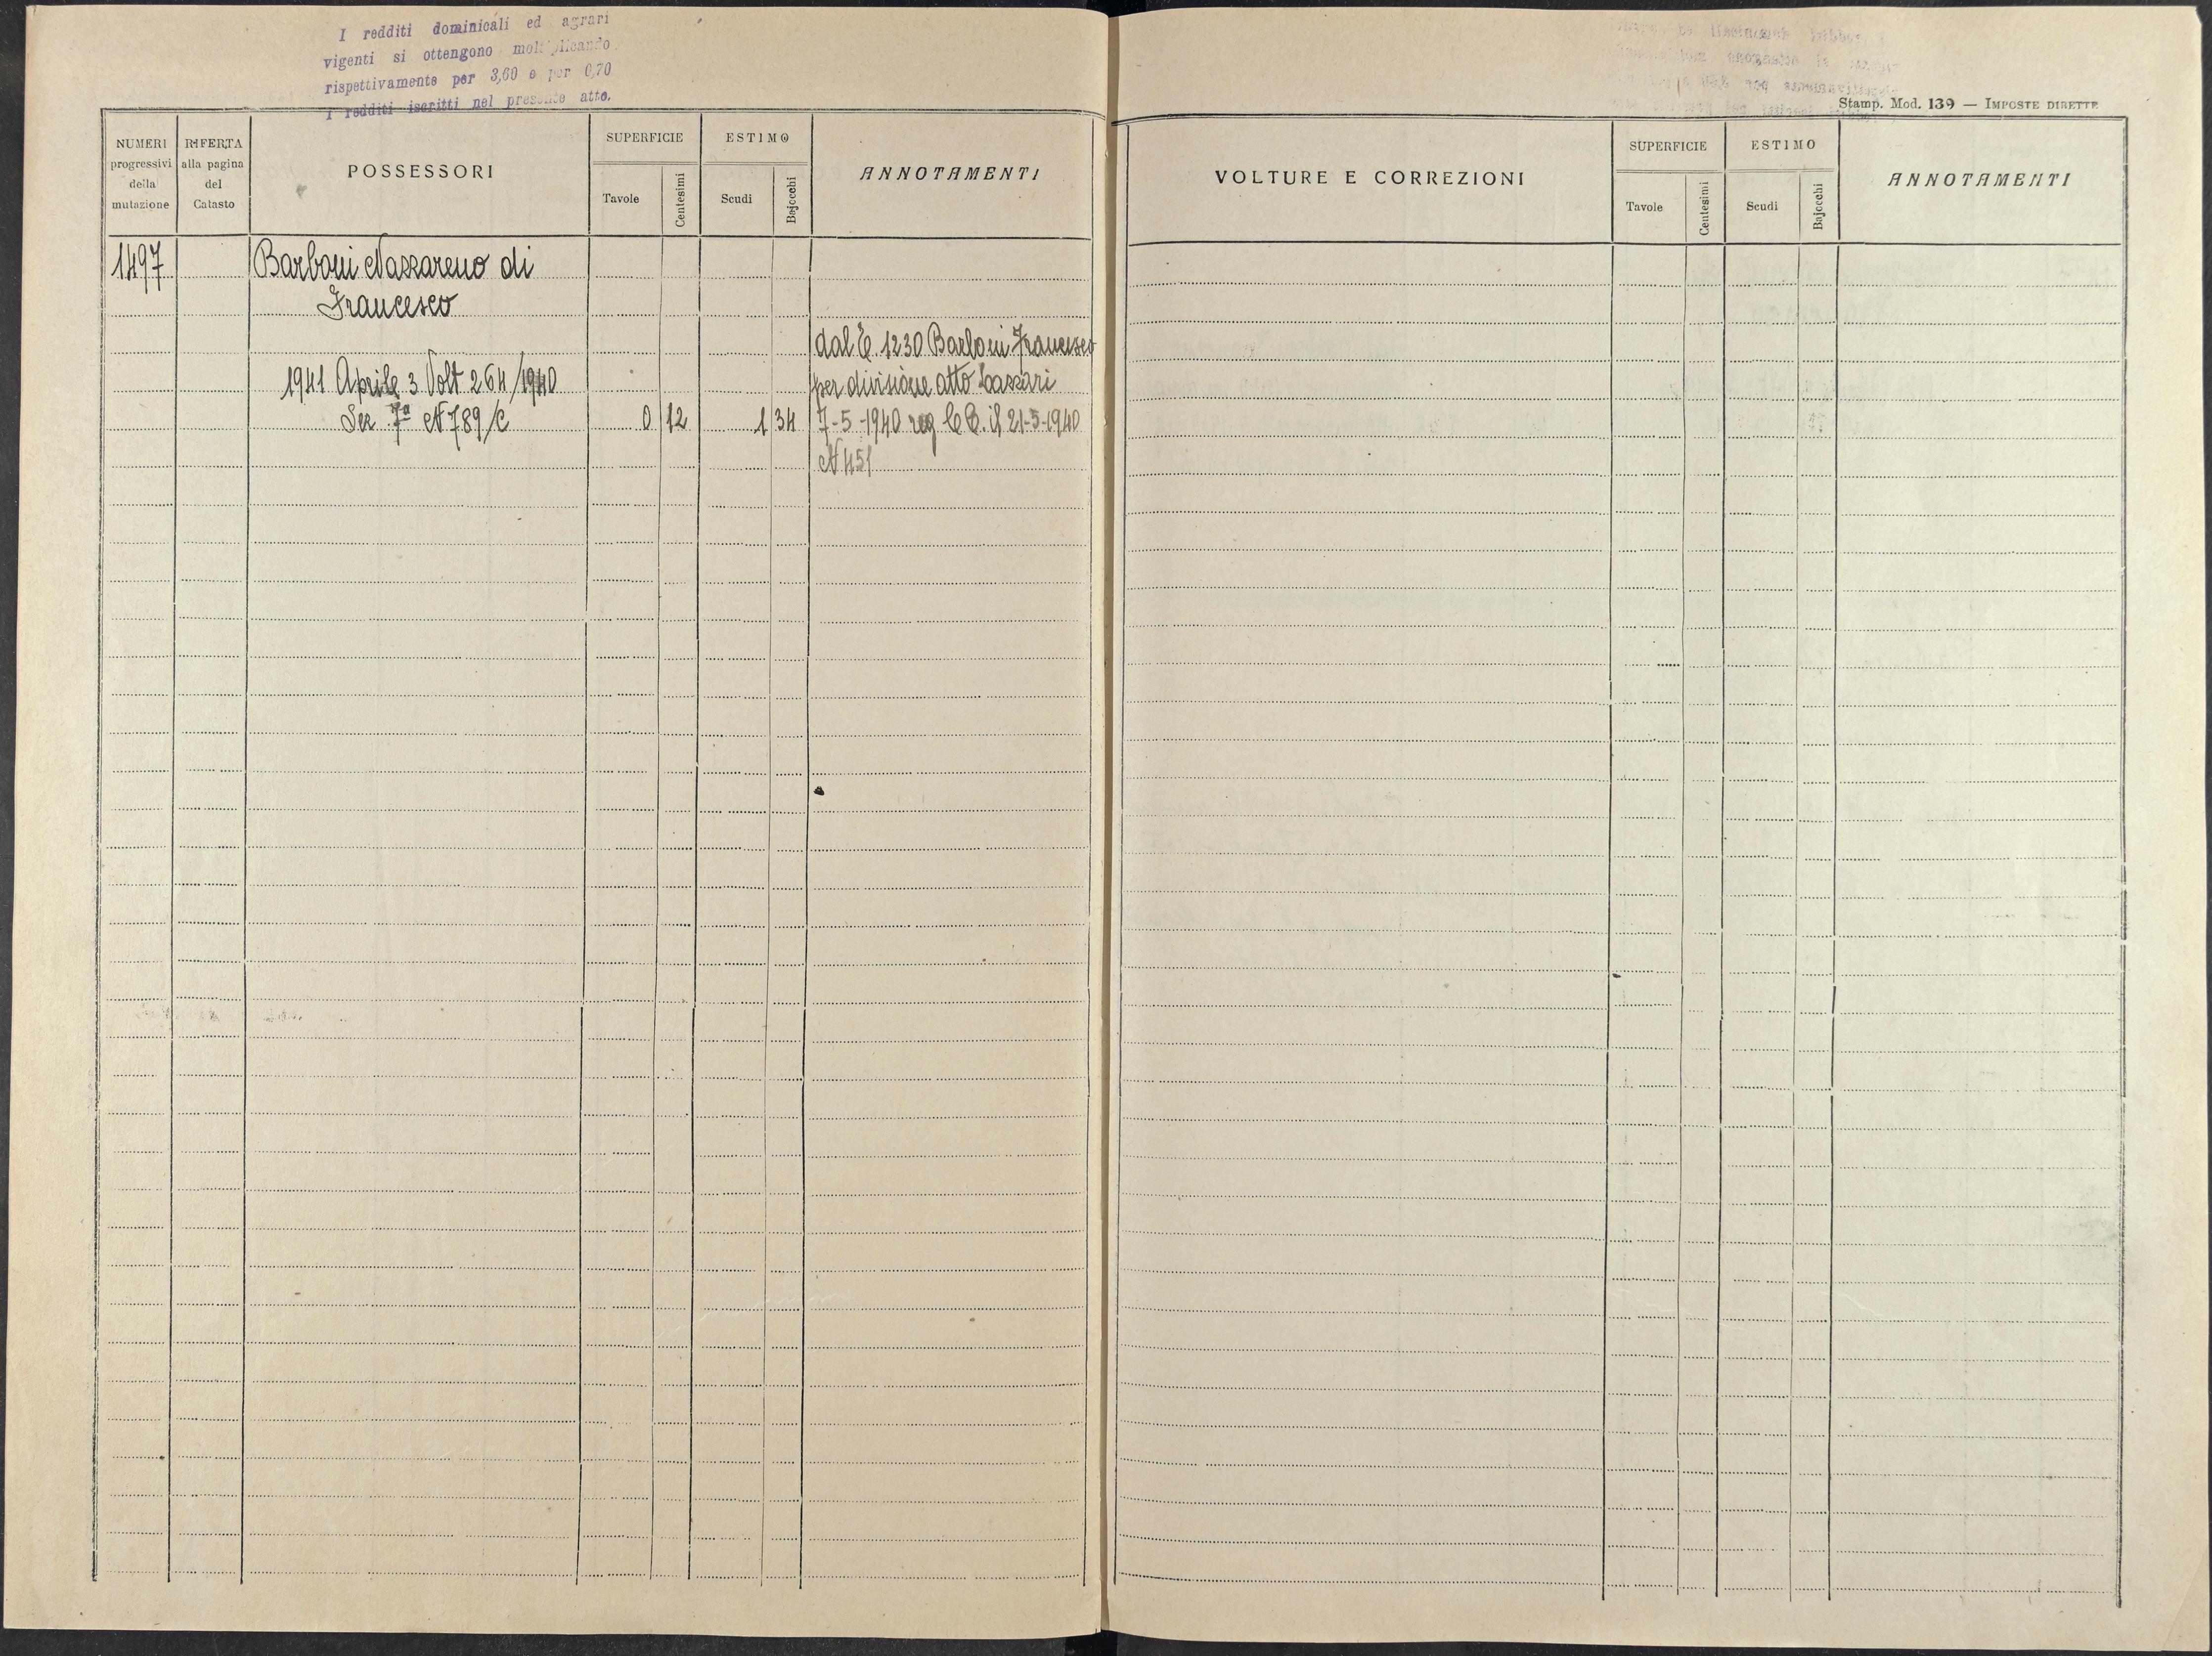 I redditi dominicali ed agrari
vigenti si ottengono moltiplicando
rispettivamente per 3,60 e per 0,70
i redditi iscritti nel presente atto.
Stamp. Mod. 139 — IMPOSTE DIRETTE
NUMERI progressivi della mutazione
RIFERTA alla pagina del Catasto
POSSESSORI
SUPERFICIE
Tavole Centesimi
ESTIMO
Scudi Bajocchi
ANNOTAMENTI
1497 Barboni Nazzareno di
Francesco
dal C. 1230 Barboni Francesco
1941 Aprile 3 Volt 264/1940 per divisione atto Lazzari
Sez 7ª N 789/C 0 12 1 34 7-5-1940 reg il 21-5-1940
N 451
VOLTURE E CORREZIONI
SUPERFICIE
Tavole Centesimi
ESTIMO
Scudi Bajocchi
ANNOTAMENTI